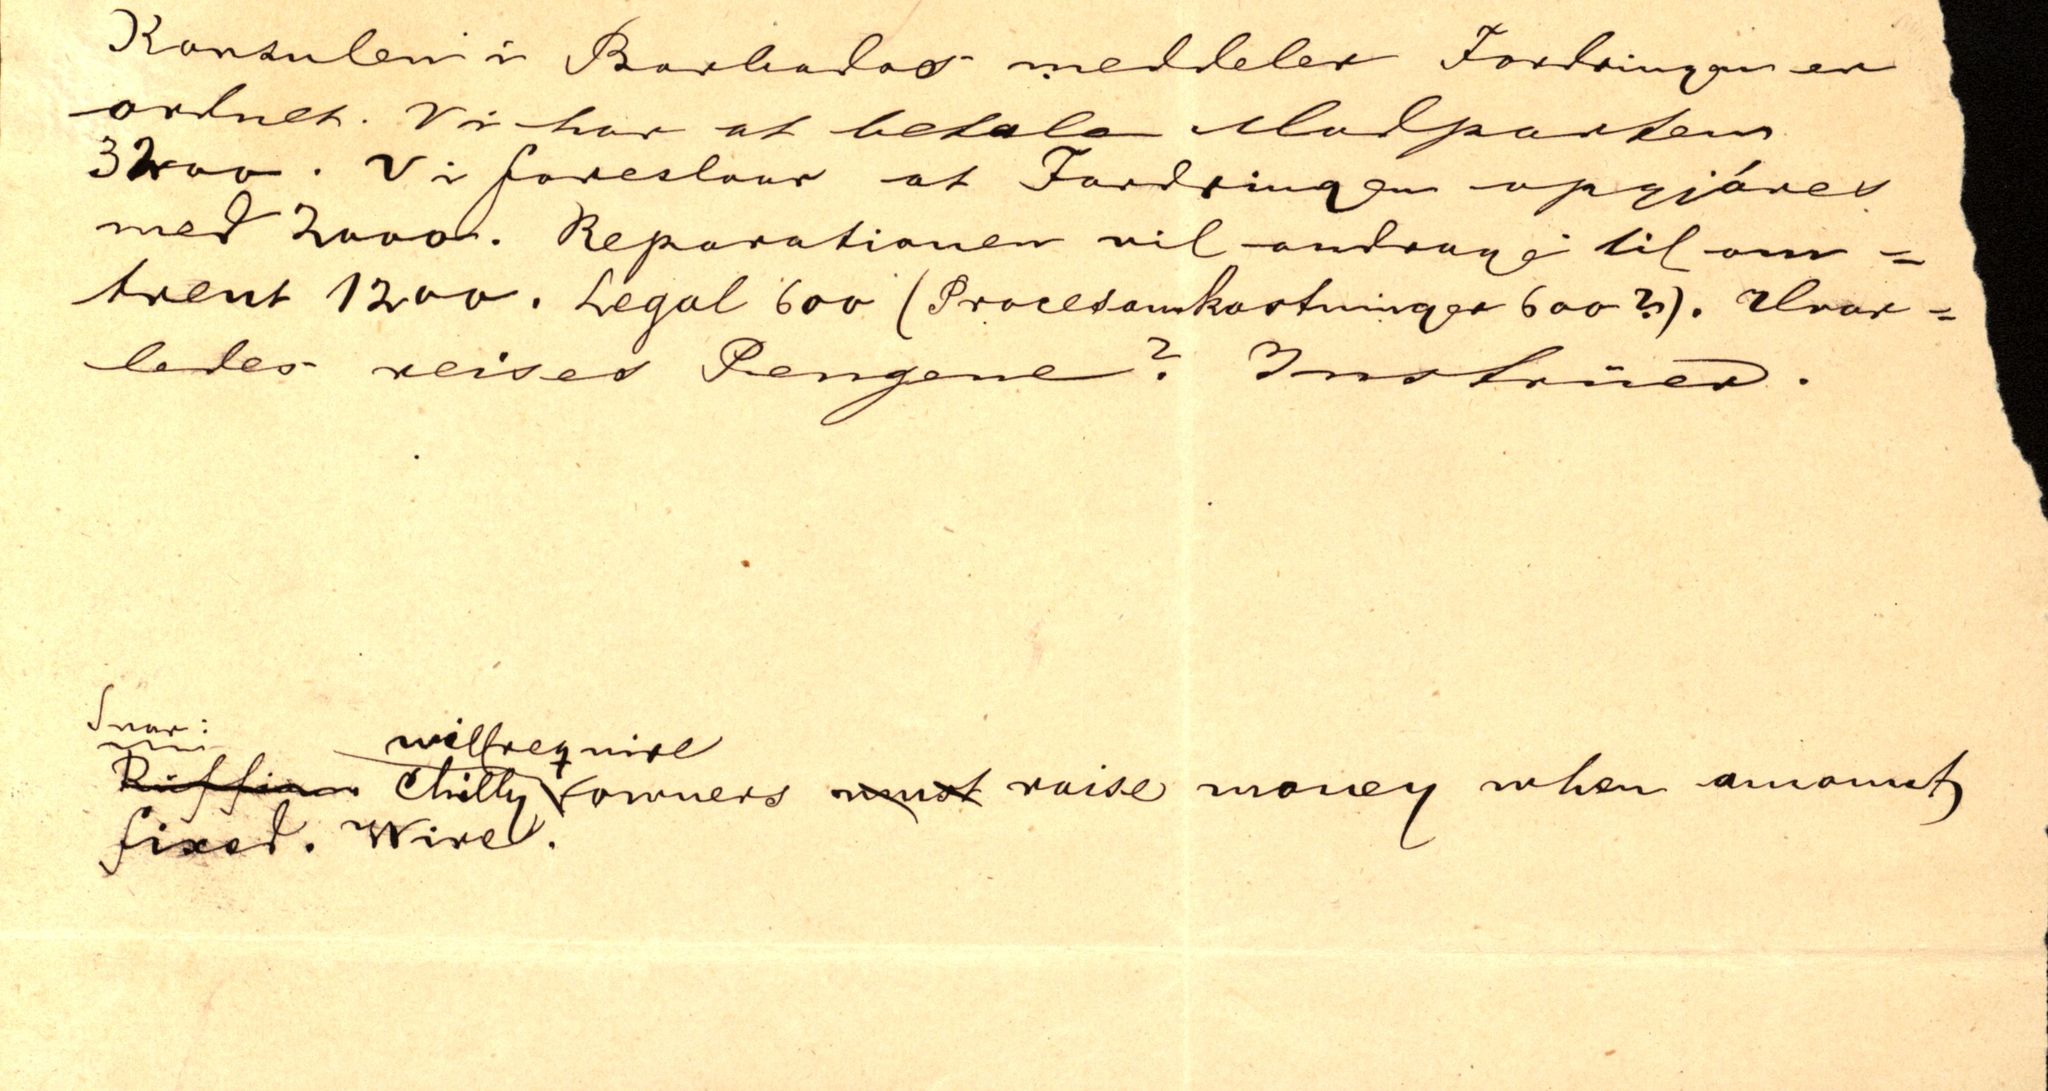 Konsulen i Barbados meddeler Fordringen er
ordnet. Vi har at betale Modparten
3200. Vi foreslaar at Fordringen opgjöres
med 2000. Reparationen vil andrage til om=
trent 1200. Legal 600 (Procesomkostninger 600?). Hvor=
ledes reises Pengene? Instruer.
Svar:
will require
Ruffian. Chilly owners must raise money when amount
fixed. Wire.